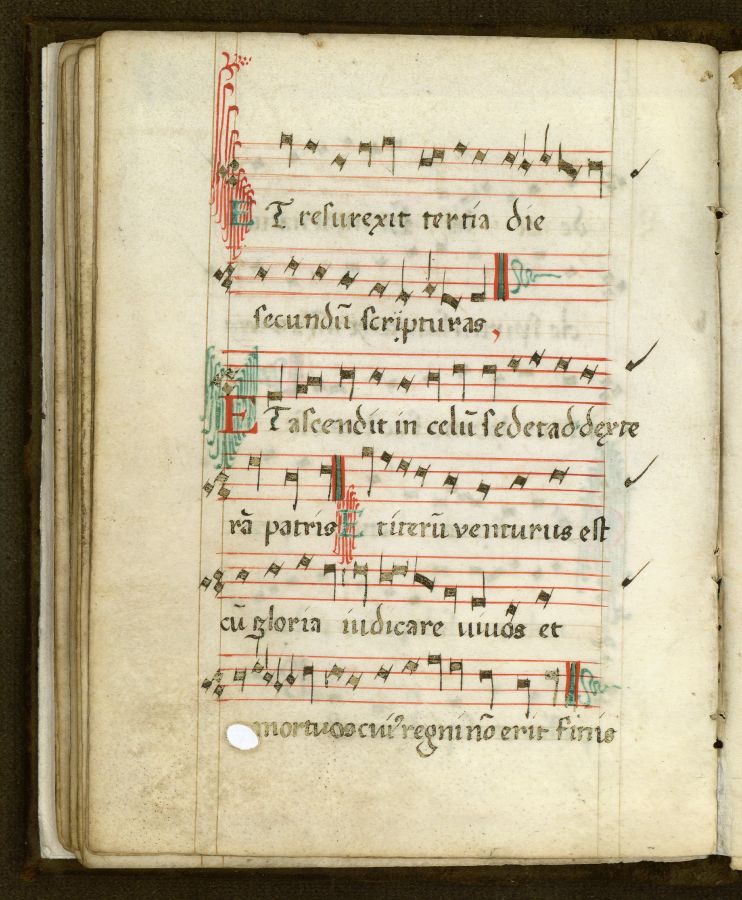 ET resurexit tertia die
secundū scripturas,
ET ascendit in celū sedet ad dexte
rā patris Et iterū venturus est
cū gloria iudicare uiuos et
mortuos cui' regni nō erit finis